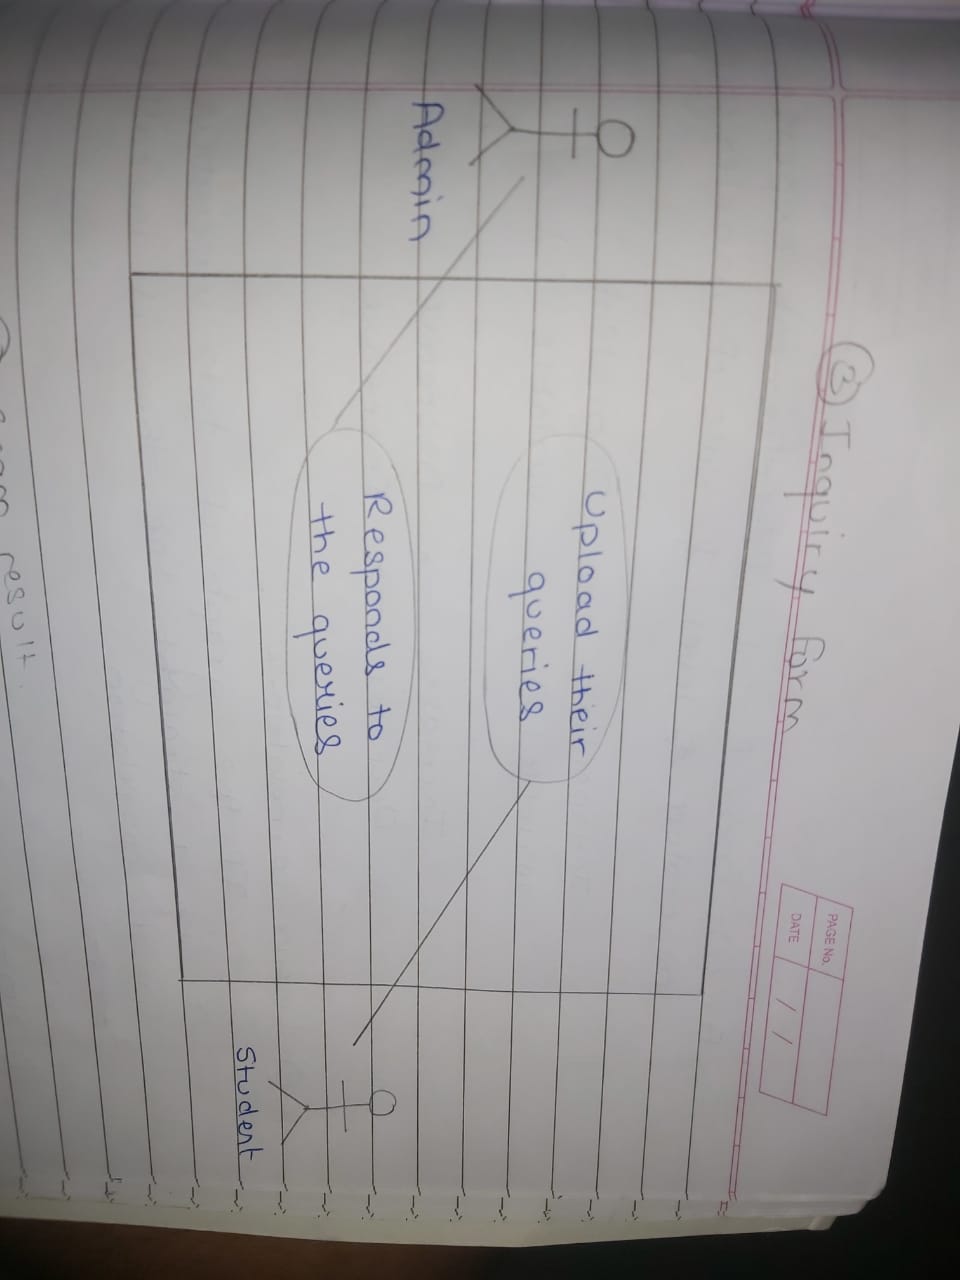 PAGE No.
DATE / /
② Inquiry form
Upload their
queries
Responds to
the queries
Admin
Student
result.